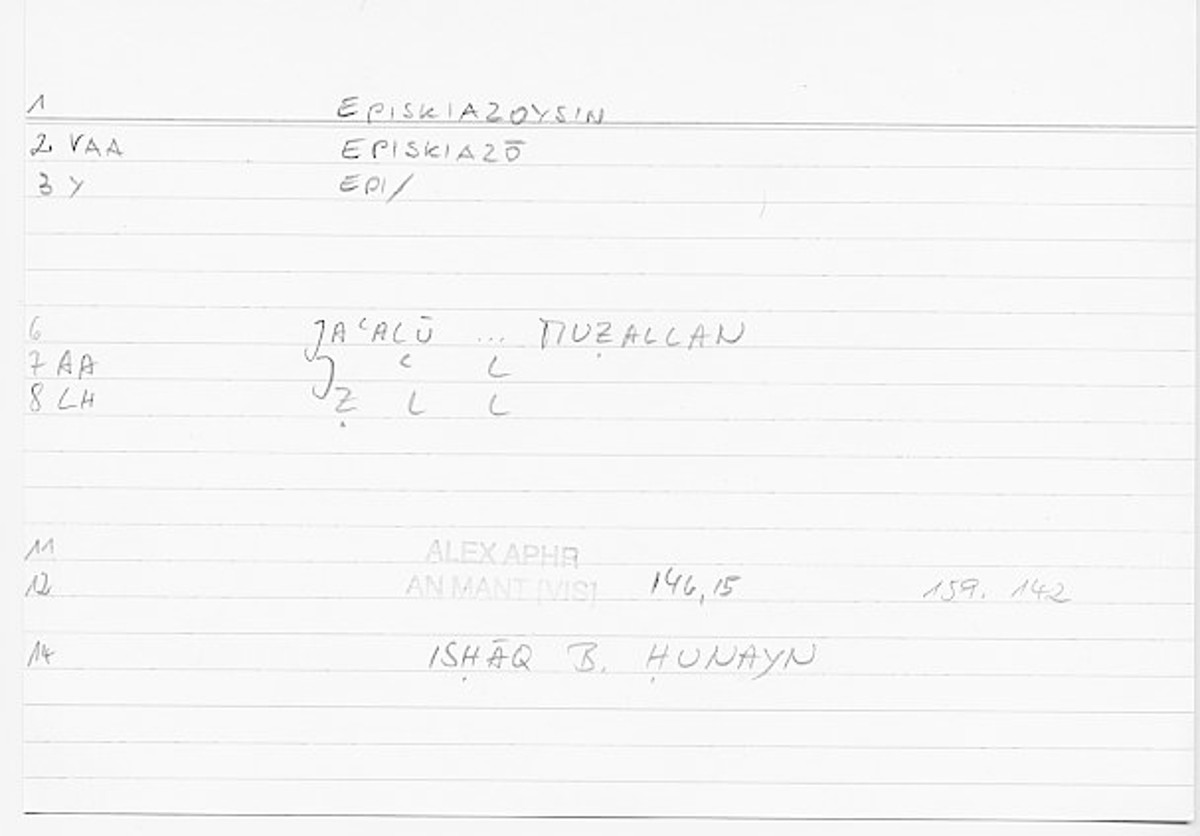 1 EPISKIAZOYSIN
2 VAA EPISKIAZŌ
3 Y EPI/
6 JAʿALŪ ... MUẒALLAN
7 AA J ʿ L
8 LH Ẓ L L
11 ALEX APHR
12 AN MANT [VIS] 146,15 159. 142
14 ISḤĀQ B. ḤUNAYN